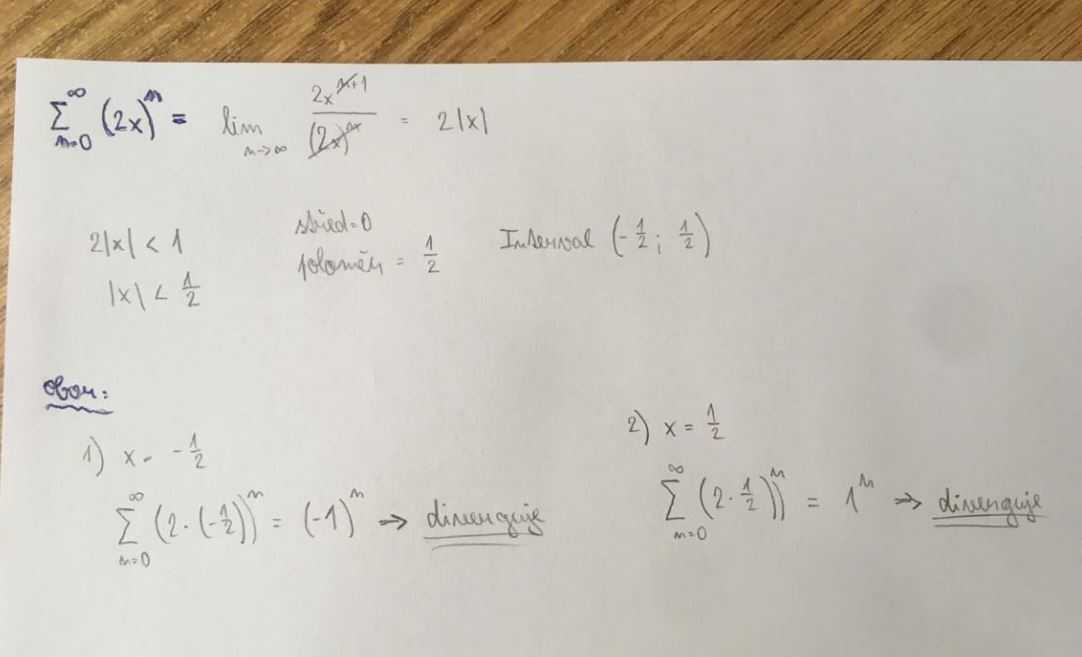 ∑_{n=0}^{∞} (2x)^n = lim_{n→∞} 2x^{n+1} / (2x)^n = 2|x|
2|x| < 1
|x| < 1/2
střed = 0
poloměr = 1/2
Interval (-1/2 ; 1/2)
obor:
1) x = -1/2
∑_{n=0}^{∞} (2·(-1/2))^n = (-1)^n → diverguje
2) x = 1/2
∑_{n=0}^{∞} (2·1/2))^n = 1^n → diverguje